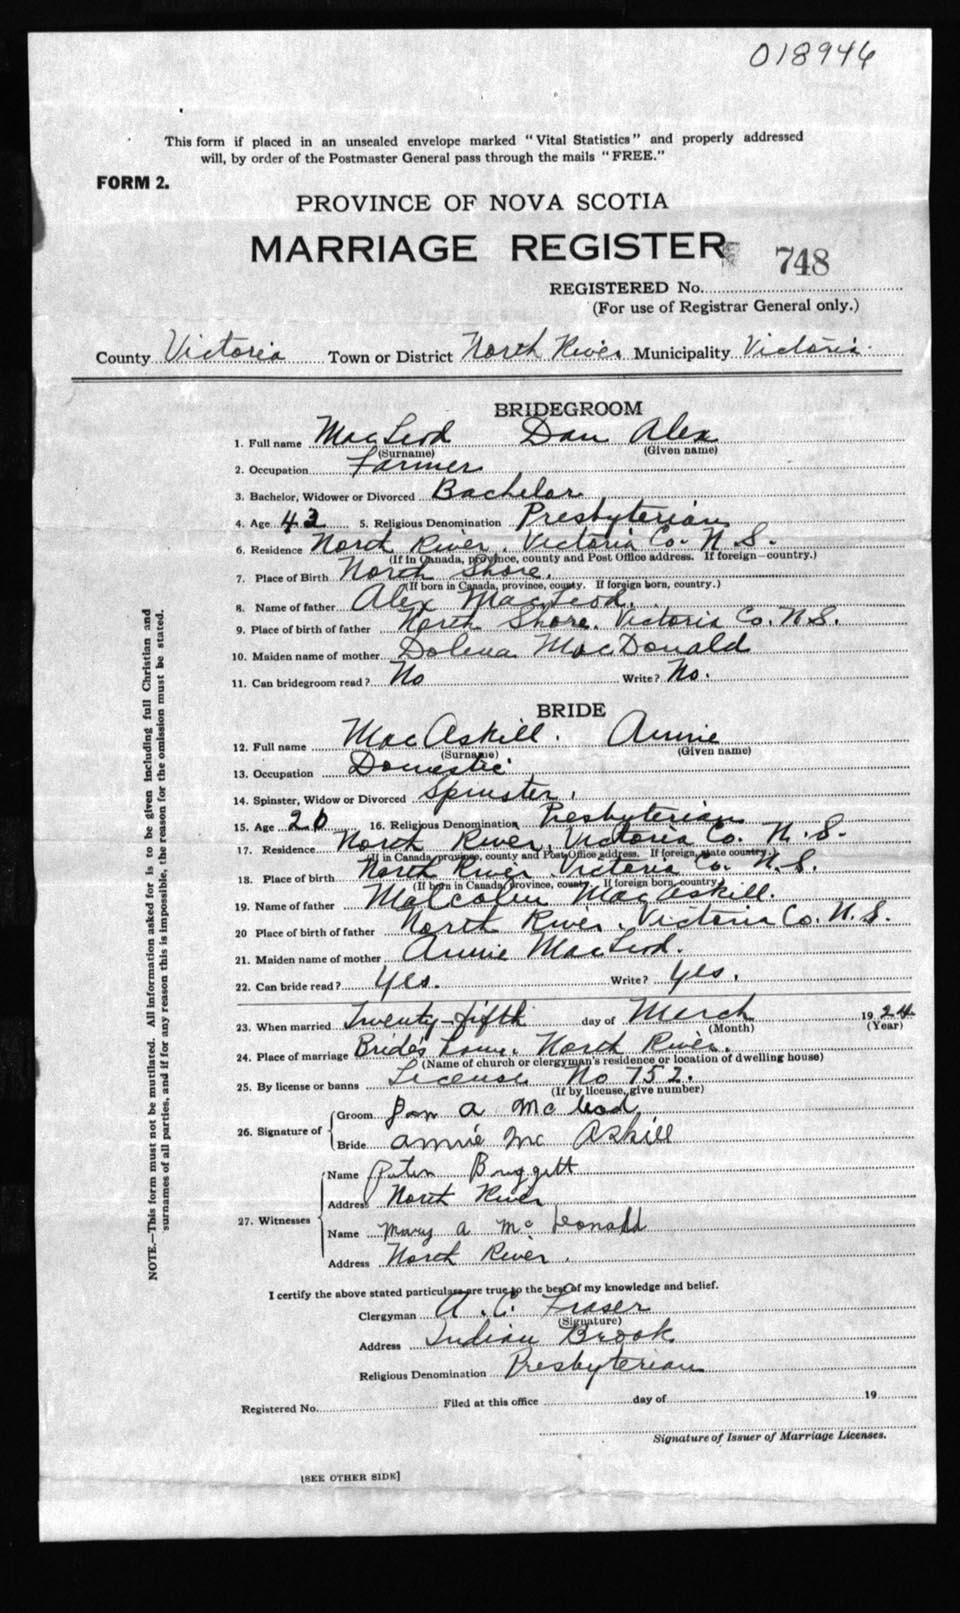 018946
This form if placed in an unsealed envelope marked "Vital Statistics" and properly addressed
will, by order of the Postmaster General pass through the mails "FREE."
FORM 2.
PROVINCE OF NOVA SCOTIA
MARRIAGE REGISTER
748
REGISTERED No.
(For use of Registrar General only.)
County Victoria Town or District North River Municipality Victoria
BRIDEGROOM
1. Full name MacLeod Dan Alex
(Surname) (Given name)
2. Occupation Farmer
3. Bachelor, Widower or Divorced Bachelor
4. Age 43 5. Religious Denomination Presbyterian
6. Residence North River, Victoria Co. N.S.
(If in Canada, province, county and Post Office address. If foreign—country.)
7. Place of Birth North Shore,
(If born in Canada, province, county. If foreign born, country.)
8. Name of father Alex MacLeod.
9. Place of birth of father North Shore. Victoria Co. N.S.
10. Maiden name of mother Dolena MacDonald
11. Can bridegroom read? No Write? No.
BRIDE
12. Full name MacAskill. Annie
(Surname) (Given name)
13. Occupation Domestic
14. Spinster, Widow or Divorced Spinster.
15. Age 20 16. Religious Denomination Presbyterian
17. Residence North River, Victoria Co. N.S.
(If in Canada, province, county and Post Office address. If foreign, state country.)
18. Place of birth North River Victoria Co. N.S.
(If born in Canada, province, county. If foreign born, country.)
19. Name of father Malcolm MacAskill.
20 Place of birth of father North River. Victoria Co. N.S.
21. Maiden name of mother Annie MacLeod.
22. Can bride read? Yes. Write? Yes.
23. When married Twenty-fifth day of March 1924
(Month) (Year)
24. Place of marriage Bride's home. North River.
(Name of church or clergyman's residence or location of dwelling house)
25. By license or banns License No 752.
(If by license, give number)
26. Signature of
Groom Dan A McLeod
Bride Annie McAskill
27. Witnesses
Name Buggett
Address North River
Name Mary A McDonald
Address North River.
I certify the above stated particulars are true to the best of my knowledge and belief.
Clergyman A. C. Fraser
(Signature)
Address Indian Brook
Religious Denomination Presbyterian
Registered No. Filed at this office day of 19
Signature of Issuer of Marriage Licenses.
[SEE OTHER SIDE]
NOTE.—This form must not be mutilated. All information asked for is to be given including full Christian and
surnames of all parties, and if for any reason this is impossible, the reason for the omission must be stated.